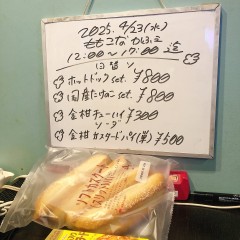 2025. 4/23(水)
ももこなかふぇ
12:00〜17:00 迄
日替り
ホットドック set. ¥800
国産たけのこ set. ¥800
金柑チューハイ ¥300
ソーダ
金柑カスタードパイ(単) ¥500